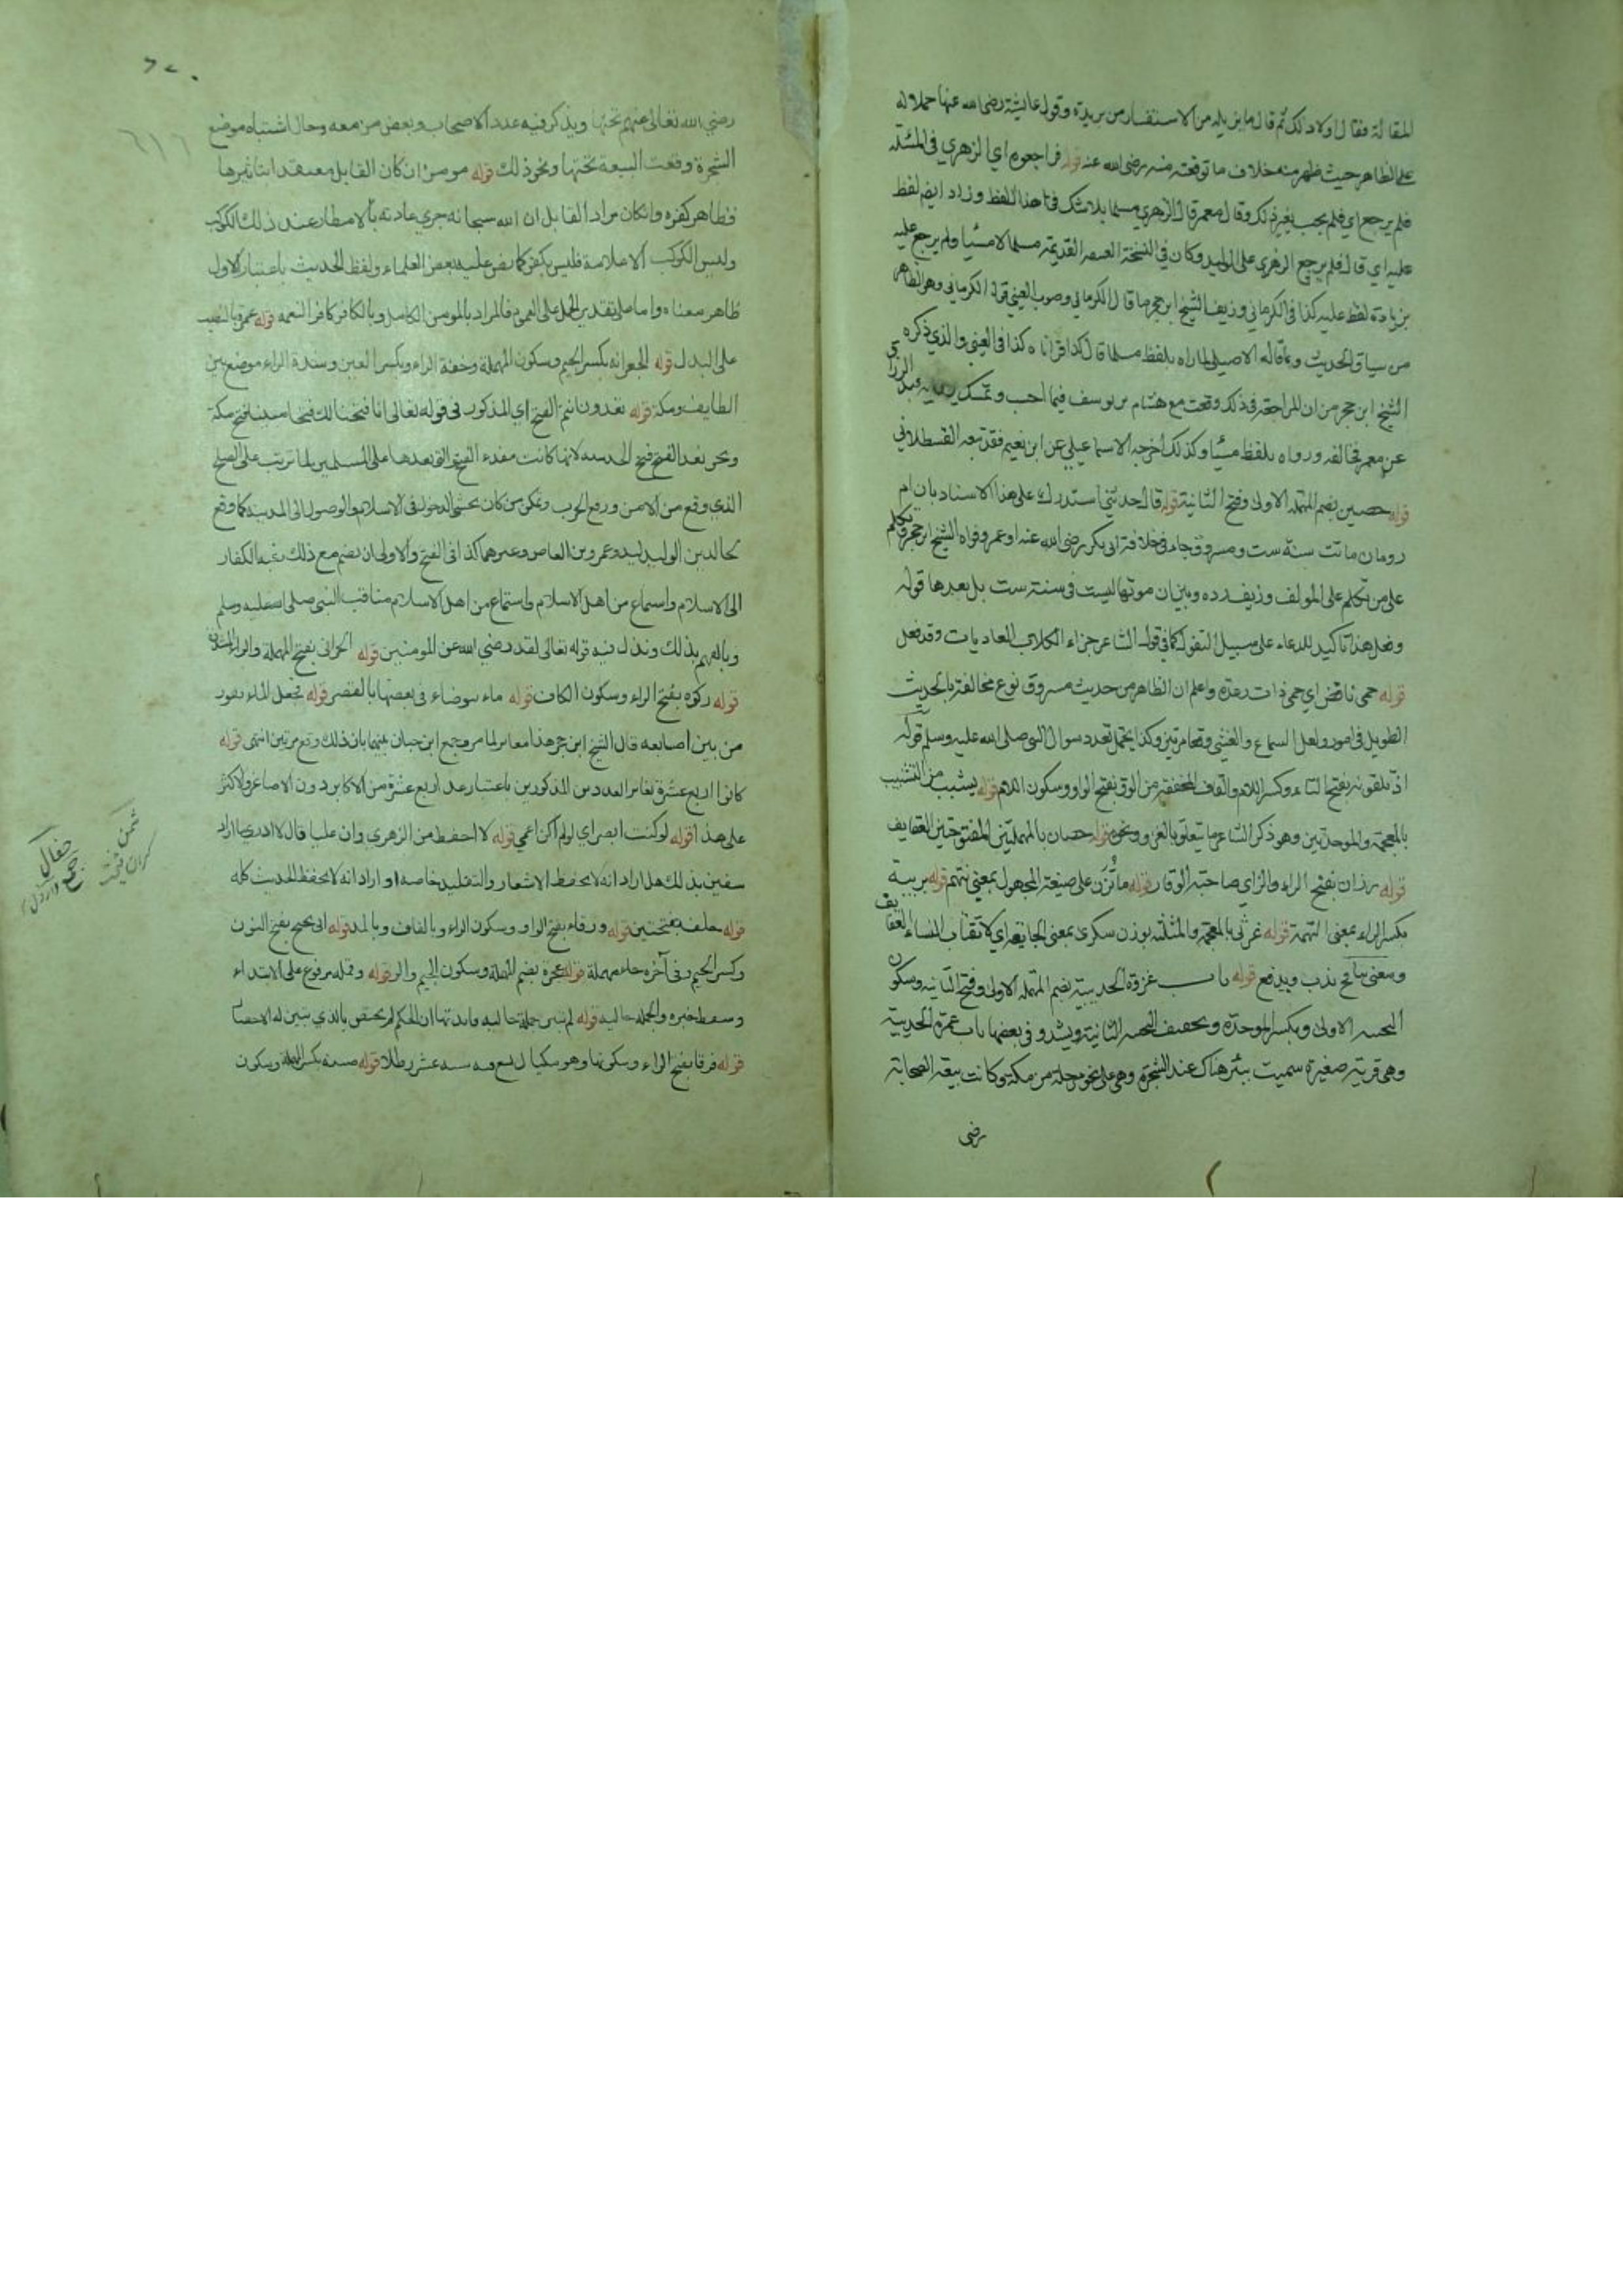 المقالة فقال اولا ذلك ثم قال ما يزيله من الاستفسار من بريرة وقول عايشة رضى الله عنها حملا له
على الظاهر حيث ظهر منه خلاف ما توقعته منه رضى الله عنه قوله فراجعوه اي الزهري في المسئلة
فلم يرجع اي فلم يجب بغير ذلك وقال معمر قال الزهري مسلما بلا شك في هذا اللفظ وزاد ايضا لفظ
عليه اي قال فلم يرجع الزهري على الوليد وكان في النسخة العتيقة القديمة مسلما لا مسيئا ولم يرجع عليه
بزيادة لفظ عليه كذا في الكرماني وزيف الشيخ ابن حجر ما قال الكرماني وصوب العيني قول الكرماني وهو الظاهر
من سياق الحديث وبما قاله الاصيلي لما رواه بلفظ مسلما قال كذا قرأناه كذا في العيني والذي ذكره
الشيخ ابن حجر من ان المراجعة في ذلك وقعت مع هشام بن يوسف فيما احسب وتمسك برواية عبد الرزاق
عن معمر فخالفه ورواه بلفظ مسيئا وكذلك اخرجه الاسماعيلي عن ابن نعيم فقد تبعه القسطلاني
قوله حصين بضم المهملة الاولى وفتح الثانية قوله قال حدثني استدرك على هذا الاسناد بان ام
رومان ماتت سنة ست ومسروق جاء في خلافة ابي بكر رضى الله عنه او عمر وقواه الشيخ ابن حجر وتكلم
على من تكلم على المولف وزيف رده وبين ان موتها ليست في سنة ست بل بعدها قوله
وفعل هذا تاكيد للدعاء على سبيل التفول كما في قول الشاعر جزاء الكلاب العاديات وقد فعل
قوله حمى نافض اي حمى ذات رعدة واعلم ان الظاهر من حديث مسروق نوع مخالفة بالحديث
الطويل في امور ولعل السماع والغشي وقعا مرتين وكذا يحتمل تعدد سوال النبي صلى الله عليه وسلم قوله
اذ تلقونه بفتح التاء وكسر اللام والقاف المخففة من الولق بفتح الواو وسكون اللام قوله يشبب من التشبيب
بالمعجمة والموحدتين وهو ذكر الشاعر ما يتعلق بالغزل ونحوه قوله حصان بالمهملتين المفتوحتين العفايف
قوله رزان بفتح الراء والزاي صاحبة الوقار قوله ما تُزَن على صيغة المجهول بمعنى تتهم قوله بريبة
بكسر الراء بمعنى التهمة قوله غرثى بالمعجمة والمثلثة بوزن سكرى بمعنى الجايعة اي لا تغتاب النساء العفايف
ومعنى ينافح يذب ويدفع قوله باب غزوة الحديبية بضم المهملة الاولى وفتح الثانية وسكون
التحتية الاولى وبكسر الموحدة وتخفيف التحتية الثانية ويشدد وفي بعضها باب عمرة الحديبية
وهي قرية صغيرة سميت ببئر هناك عند الشجرة وهي على نحو مرحلة من مكة وكانت بيعة الصحابة
رضى
رضي الله تعالى عنهم تحتها ويذكر فيه عدد الاصحاب وبعض من معه وحال اشتباه موضع
الشجرة وقعت البيعة تحتها ونحو ذلك قوله مومن ان كان القايل معتقدا بتاثيرها
فظاهر كفره وان كان مراد القايل ان الله سبحانه جرى عادته بالامطار عند ذلك الكوكب
وليس الكوكب الا علامة فليس بكفر كما نص عليه بعض العلماء ولفظ الحديث باعتبار الاول
ظاهر معناه واما على تقدير الحمل على العموم فالمراد بالمومن الكامل وبالكافر كافر النعمة قوله عمرة بالنصب
على البدل قوله الجعرانة بكسر الجيم وسكون المهملة وخفة الراء وبكسر العين وشدة الراء موضع بين
الطايف ومكة قوله تعدون انتم الفتح اي المذكور في قوله تعالى انا فتحنا لك فتحا مبينا فتح مكة
ونحن نعد الفتح فتح الحديبية لانها كانت مقدمة الفتح التي بعدها على المسلمين لما ترتب على الصلح
الذي وقع من الامن ورفع الحرب وتمكن من كان يخشى الدخول في الاسلام والوصول الى المدينة كما وقع
لخالد بن الوليد وعمرو بن العاص وغيرهما كذا في الفتح والاولى ان يضم مع ذلك رغبة الكفار
الى الاسلام واستماع من اهل الاسلام واستماع من اهل الاسلام مناقب النبي صلى الله عليه وسلم
قوله ركوة بفتح الراء وسكون الكاف قوله ماء نتوضاء في بعضها بالقصر قوله فجعل الماء يفور
من بين اصابعه قال الشيخ ابن حجر هذا مغاير لما مر وجمع ابن حبان بينهما بان ذلك وقع مرتين انتهى قوله
كانوا اربع عشرة تغاير العددين المذكورين باعتبار عد اربع عشرة من الاكابر دون الاصاغر والاكثر
على هذا قوله لو كنت ابصر اي لو لم اكن اعمى قوله لا احفظ من الزهري وان عليا قال لا ادري اراد
سفين بذلك هل اراد انه لا يحفظ الاشعار والتقليد خاصة او اراد انه لا يحفظ الحديث كله
قوله خلف بفتحتين قوله ورقاء بفتح الواو وسكون الراء وبالقاف وبالمد قوله ابي نجيح بفتح النون
وكسر الجيم وفي آخره حاء مهملة قوله عجرة بضم المهملة وسكون الجيم والراء قوله وقمله مرفوع على الابتداء
قوله فرقا بفتح الراء وسكونها وهو مكيال يسع فيه ستة عشر رطلا قوله